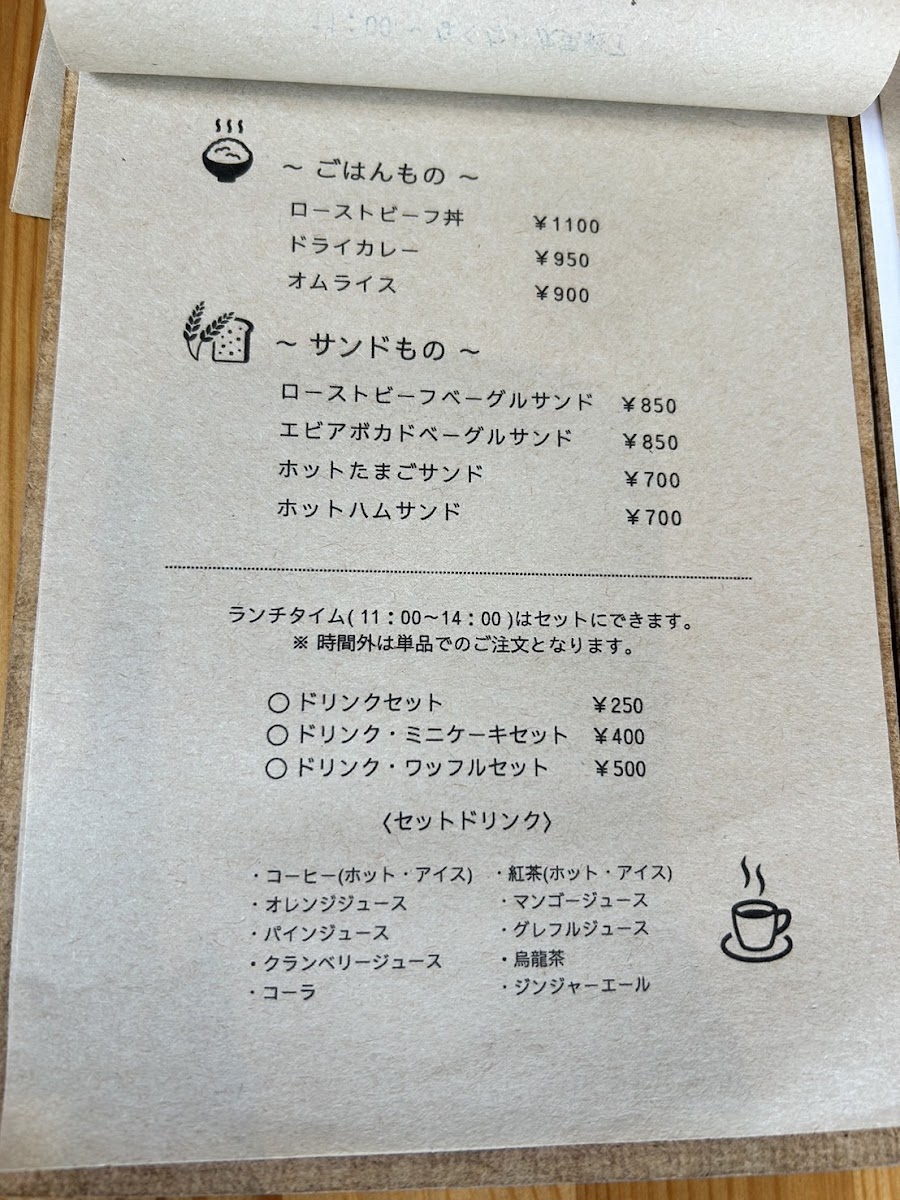 ～ ごはんもの ～
ローストビーフ丼 ￥1100
ドライカレー ￥950
オムライス ￥900
～ サンドもの ～
ローストビーフベーグルサンド ￥850
エビアボカドベーグルサンド ￥850
ホットたまごサンド ￥700
ホットハムサンド ￥700
ランチタイム( 11：00～14：00 )はセットにできます。
※ 時間外は単品でのご注文となります。
○ ドリンクセット ￥250
○ ドリンク・ミニケーキセット ￥400
○ ドリンク・ワッフルセット ￥500
〈セットドリンク〉
・コーヒー(ホット・アイス) ・紅茶(ホット・アイス)
・オレンジジュース ・マンゴージュース
・パインジュース ・グレフルジュース
・クランベリージュース ・烏龍茶
・コーラ ・ジンジャーエール